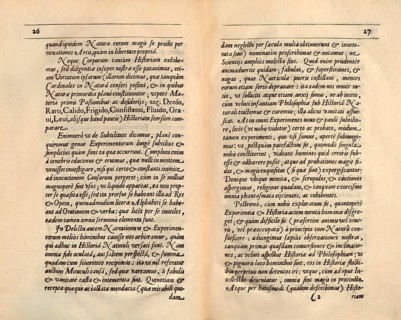 26
quandoquidem Natura rerum magis se prodit per
vexationes Artis, quam in libertate propria.
Neque Corporum tantum Historiam exhibemus,
sed diligentiæ insuper nostræ esse putavimus, etiam
Virtutum ipsarum (illarum dicimus, quæ tanquam
Cardinales in Natura censeri possint, & in quibus
Naturæ primordia plane constituuntur, utpote Materiæ
primis Passionibus ac desideriis; viz. Denso,
Raro, Calido, Frigido, Consistenti, Fluido, Gravi,
Levi, aliisque haud paucis) Historiam seorsim comparare.
Enimvero ut de Subtilitate dicamus; plane
genus Experimentorum longe subtilius &
simplicius quam sunt ea quæ occurrunt. Complura enim
a tenebris educimus & eruimus, quæ nulli in mentem
venisset investigare, nisi qui certo & constanti
ad inventionem Causarum pergeret; cum in se nullius
magnopere sint usus; ut liquido appareat, ea non propter
se quæsita esse; sed ita prorsus se habeant illa ad Res
& Opera, quemadmodum literæ Alphabeti se habeant
ad Orationem & verba; quæ licet per se inutiles,
eædem tamen omnis sermonis elementa sunt.
In Delectu autem Narrationum & Experimentorum
melius hominibus cavisse nos arbitramur, quam
qui adhuc in Historia Naturali versati sunt. Nam
omnia fide oculata, aut saltem perspecta, & summa
quadam cum severitate recipimus; ita ut nil referatur
auctum Miraculi causa, sed quæ narramus, à fabulis
& vanitate casta & intemerata sint. Quinetiam &
recepta quæque ac jactata mendacia (quæ mirabili quodam
27
dam neglectu per sæcula multa obtinuerunt & inveterata
sunt) nominatim proscribimus & notamus; ne
Scientiis amplius molesta sint. Quod enim prudenter
animadvertit quidam; fabulas, & superstitiones, &
nugas, quas Nutriculæ pueris instillant, mentes
eorum etiam serio depravare: ita eadem nos movit ratio,
ut solliciti atque etiam anxii simus, ne ab initio,
cum veluti infantiam Philosophiæ sub Historia Naturali
tractemus & curemus; illa alicui vanitati assuescat.
At in omni Experimento novo & paulo subtiliore,
licet (ut nobis videtur) certo ac probato, modum
tamen experimenti, quo usi sumus, aperte subjungimus:
ut, postquam patefactum sit, quomodo singula
nobis constiterint, videant homines quid erroris subesse
& adhærere possit; atque ad probationes magis fidas,
& magis exquisitas (si quæ sint) expergiscantur:
Denique ubique monita, & scrupulos, & cautiones
aspergimus, religione quadam, & tanquam exorcismo
omnia phantasmata ejicientes, ac cohibentes.
Postremo, cum nobis exploratum sit, quantopere
Experientia & Historia aciem mentis humanæ disgreget;
& quam difficile sit (præsertim animis vel teneris,
vel præoccupatis) à principio cum Natura consuescere:
adjungimus sæpius observationes nostras,
tanquam primas quasdam conversiones & inclinationes,
ac veluti aspectus Historiæ ad Philosophiam: ut
& pignoris loco hominibus sint, eos in Historiæ fluctibus
perpetuo non detentos iri; utque, cum ad opus Intellectus
deveniatur, omnia sint magis in procinctu.
Atque per hujusmodi (qualem describimus) Historiam
ζ 2